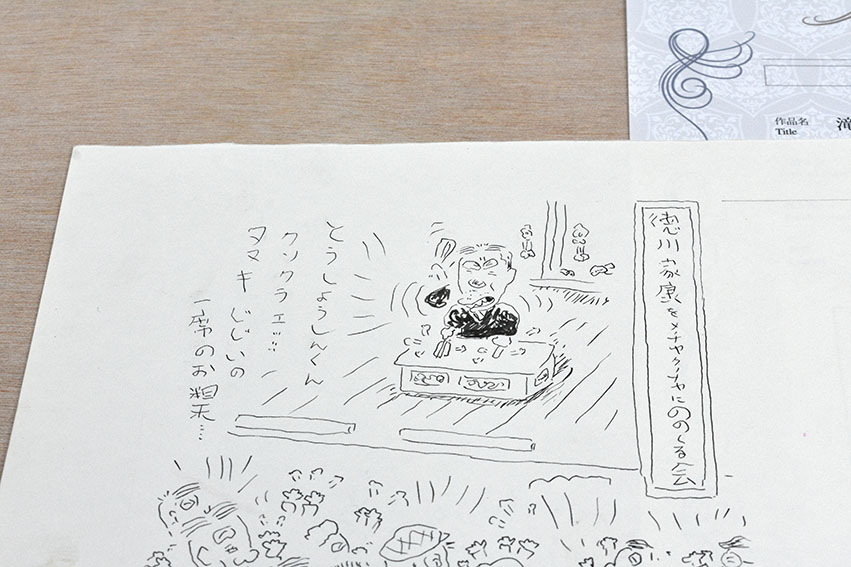 作品名
Title
徳川家康をメチャクチャにののしる会
とうしょうしんくん
クソクラエッ!!
タマキじじいの
一席のお粗末…